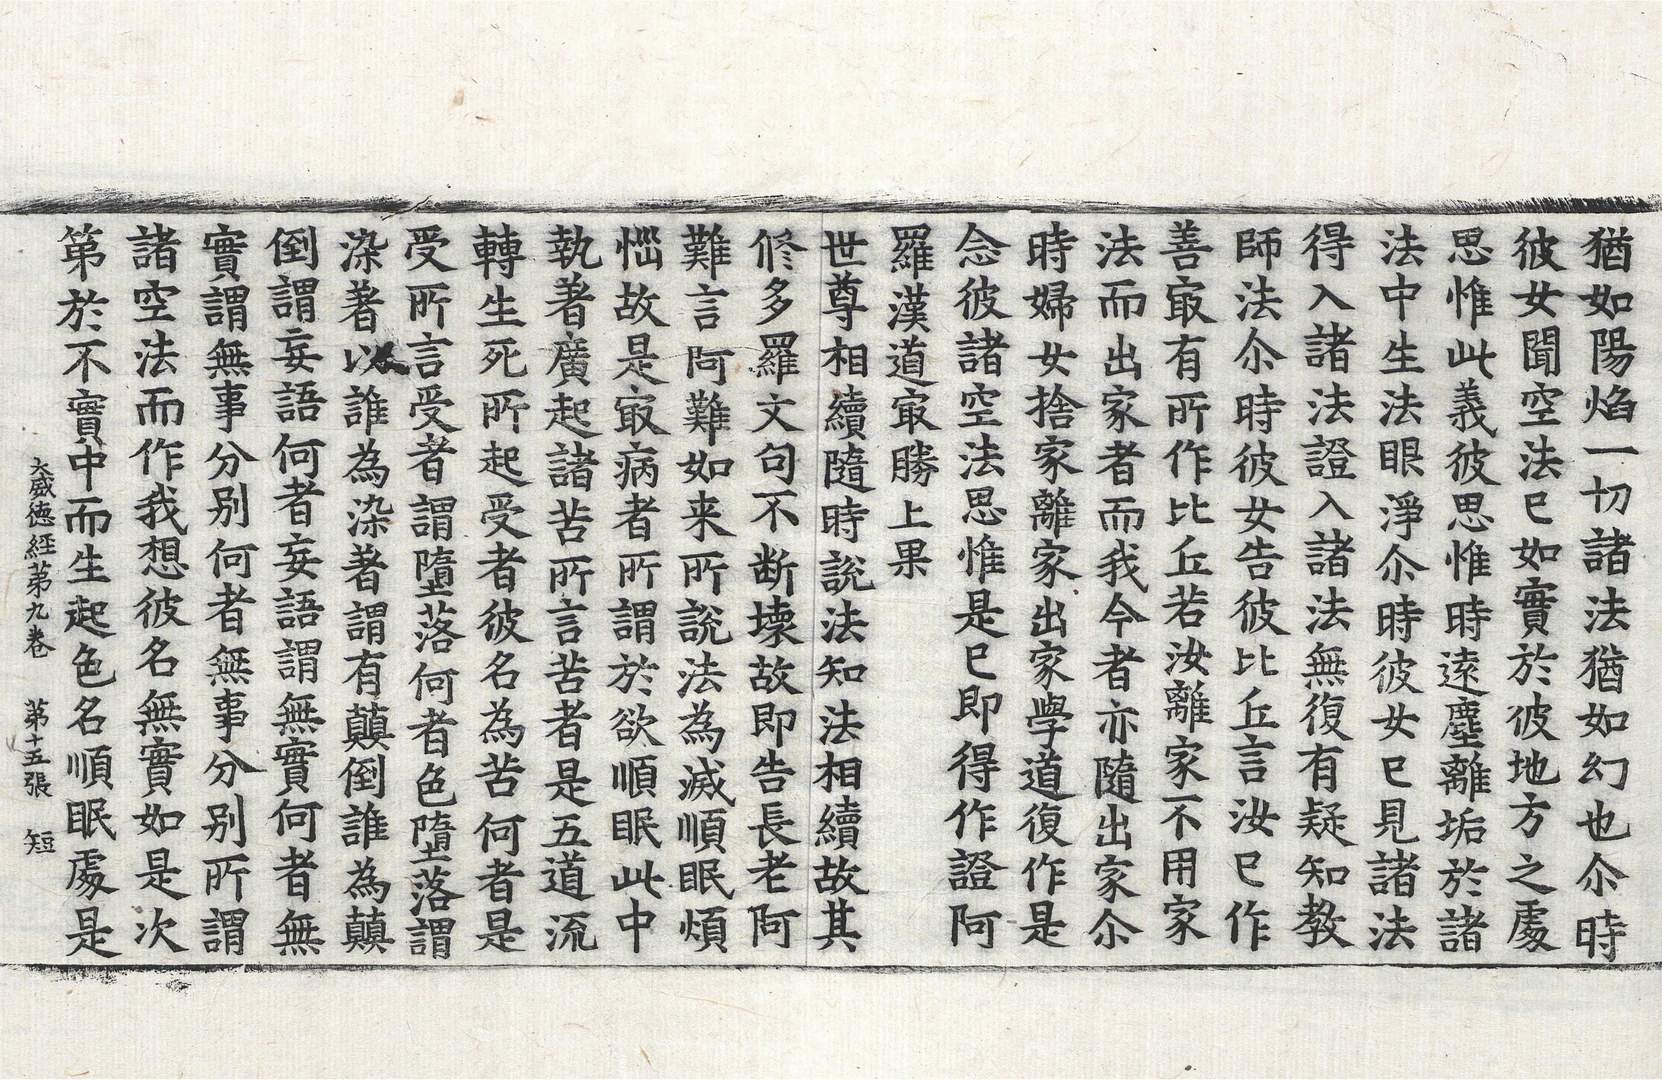 猶如陽焰一切諸法猶如幻也尒時
彼女聞空法已如實於彼地方之處
思惟此義彼思惟時遠塵離垢於諸
法中生法眼淨尒時彼女已見諸法
得入諸法證入諸法無復有疑知教
師法尒時彼女告彼比丘言汝已作
善㝡有所作比丘若汝離家不用家
法而出家者而我今者亦隨出家尒
時婦女捨家離家出家學道復作是
念彼諸空法思惟是已即得作證阿
羅漢道㝡勝上果
世尊相續隨時說法知法相續故其
修多羅文句不断壞故即告長老阿
難言阿難如来所說法為滅順眠煩
惱故是㝡病者所謂於欲順眠此中
執著廣起諸苦所言苦者是五道流
轉生死所起受者彼名為苦何者是
受所言受者謂墮落何者色墮落謂
染著以誰為染著謂有顛倒誰為顛
倒謂妄語何者妄語謂無實何者無
實謂無事分別何者無事分別所謂
諸空法而作我想彼名無實如是次
第於不實中而生起色名順眠處是
大威德経第九卷　第十五張　短